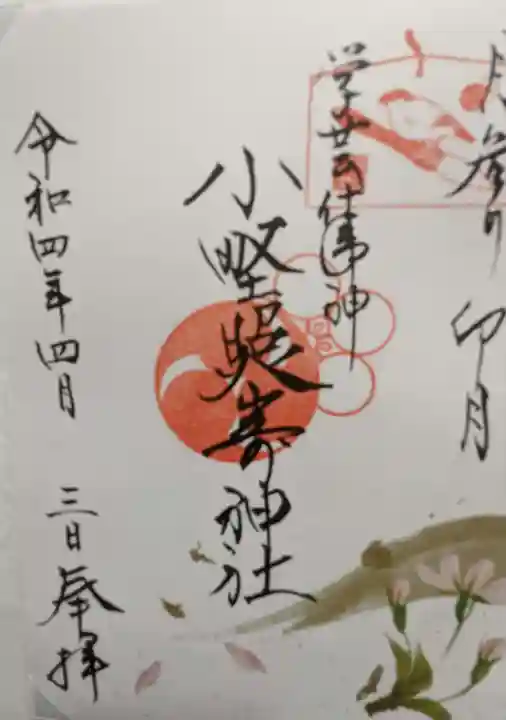 月参り 卯月
学芸の神
小野照崎神社
令和四年四月 三日奉拝